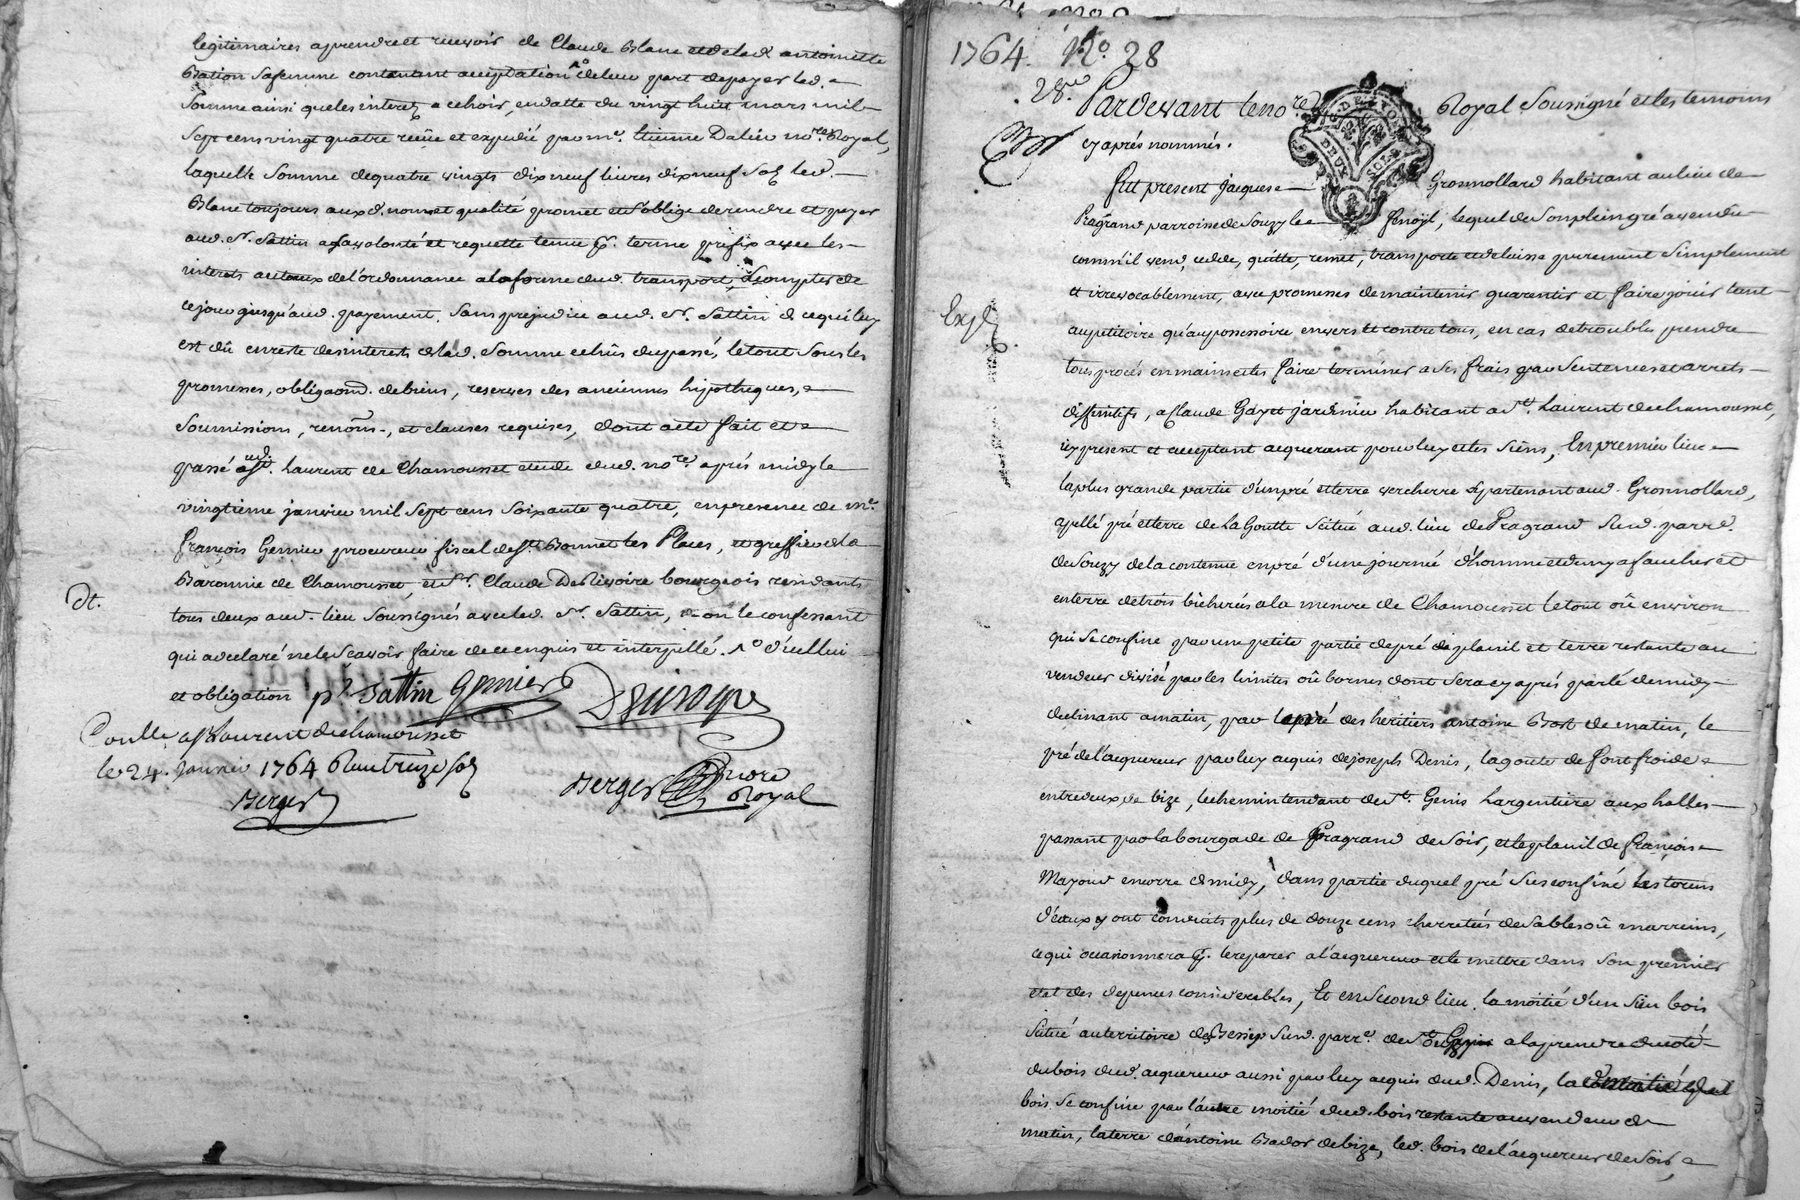 legitimaires a prendre et recevoir de Claude Blanc et de lad. antoinette
Bation sa femme contenant acceptation de leur part de payer lad.
Somme ainsi que les interets a echoir, en datte du vingt huit mars mil
Sept cens vingt quatre reçüe et expedié par me. Etienne Dalier nore. Royal,
laquelle Somme de quatre vingts dix neuf livres dix neuf sols led.
Blanc toujours auxd. nom et qualité promet et s'oblige de rendre et payer
aud. Sr. Sattin a sa volonté et requette tenue pr. terme prefix avec les
interets au taux de l'ordonnance a la forme dud. transport, a compter de
ce jour jusqu'aud. payement, Sans prejudice aud. Sr. Sattin de ce qui luy
est dû en reste des interets de lad. Somme echûs du passé, le tout Sous les
promesses, obligaons. de biens, reserves des anciennes hipotheques,
Soumissions, renons., et clauses requises, dont acte fait et
passé aud. St. Laurent de Chamousset etude dud. nore. après midy le
vingtieme janvier mil Sept cens Soixante quatre, en presence de me.
françois Genier procureur fiscal de St. Bonnet les Places, et greffier de la
Baronnie de Chamousset, et Sr. Claude DeRivoire bourgeois residants
tous deux aud. lieu Soussignés avec led. Sr. Sattin, et non le confessant
qui a declaré ne le Scavoir faire de ce enquis et interpellé. d'icelluy
et obligation pr Sattin Genier Derivoyre
Conllé a St Laurent de chamousset
le 24. Janvier 1764 Reçu treize sols
Berger
Berger nore Royal
Dt.
1764. No. 28
28me. Pardevant le nore. Royal Soussigné et les temoins
cy après nommés.
DEUX SOLS
fut present jacques Gronnollard habitant au lieu de
Pragrand parroisse de Souzy le fenoÿl, lequel de Son plein gré a vendu
comm'il vend, cedde, quitte, remet, transporte et delaisse purement Simplement
et irrevocablement, avec promesses de maintenir guarentir et faire jouir tant
Expdé
au petitoire qu'au possessoire envers et contre tous, en cas de troubles prendre
tous procès en mains et les faire terminer a Ses frais par Sentences et arrets
diffinitifs, a Claude Gayet jardinier habitant a St. Laurent de chamousset,
icy present et acceptant acquerant pour luy et les Siens, En premier lieu
la plus grande partie d'un pré et terre verchere appartenant aud. Gronnollard,
apellé pré et terre de La Goutte Scitué aud. lieu de Pragrand Sus d. parre.
de Souzy de la contenüe en pré d'une journée d'homme et demy a faucher et
en terre de trois bicherés a la mesure de Chamousset le tout oû environ
qui Se confine par une petite partie de pré de planil et terre restante au
vendeur divisé par les limites oû bornes dont Sera cy après parlé de midy
declinant a matin, par le pré des heritiers antoine Bost de matin, le
pré de l'acquereur par luy acquis de joseph Denis, la goute de font froide
entre deux de bize, le chemin tendant de St. Genis L'argentiere aux halles
passant par la bourgade de Pragrand de Soir, et le planil de françois
Mayoud encorre de midy, dans partie duquel pré Sus confiné les torrens
d'eaux y ont conduits plus de douze cens cherretées de Sables oû marreins,
ce qui occasionnera pr. le reparer a l'acquereur et le mettre dans Son premier
etat des depences considerables, Et en Second lieu la moitié d'un Sien bois
Scitué au territoire de Sus d. parre. de Souzy a la prendre du coté
du bois dud. acquereur aussi par luy acquis dud. Denis, la
bois Se confine par l'autre moitié dud. bois restante au vendeur de
matin, la terre d'antoine Bador de bize, led. bois de l'acquereur de Soir,